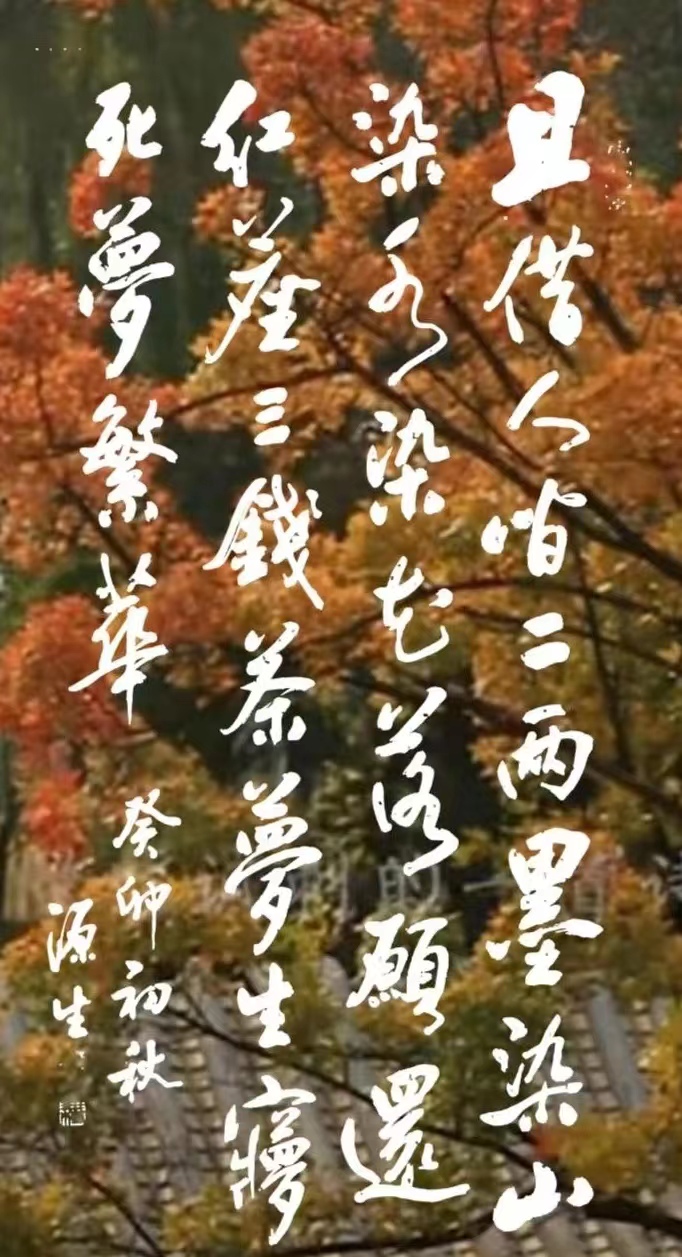 且借人间二兩墨染山
染水染花落願還
紅塵三錢茶夢生寢
死夢繁華
癸卯初秋
源生